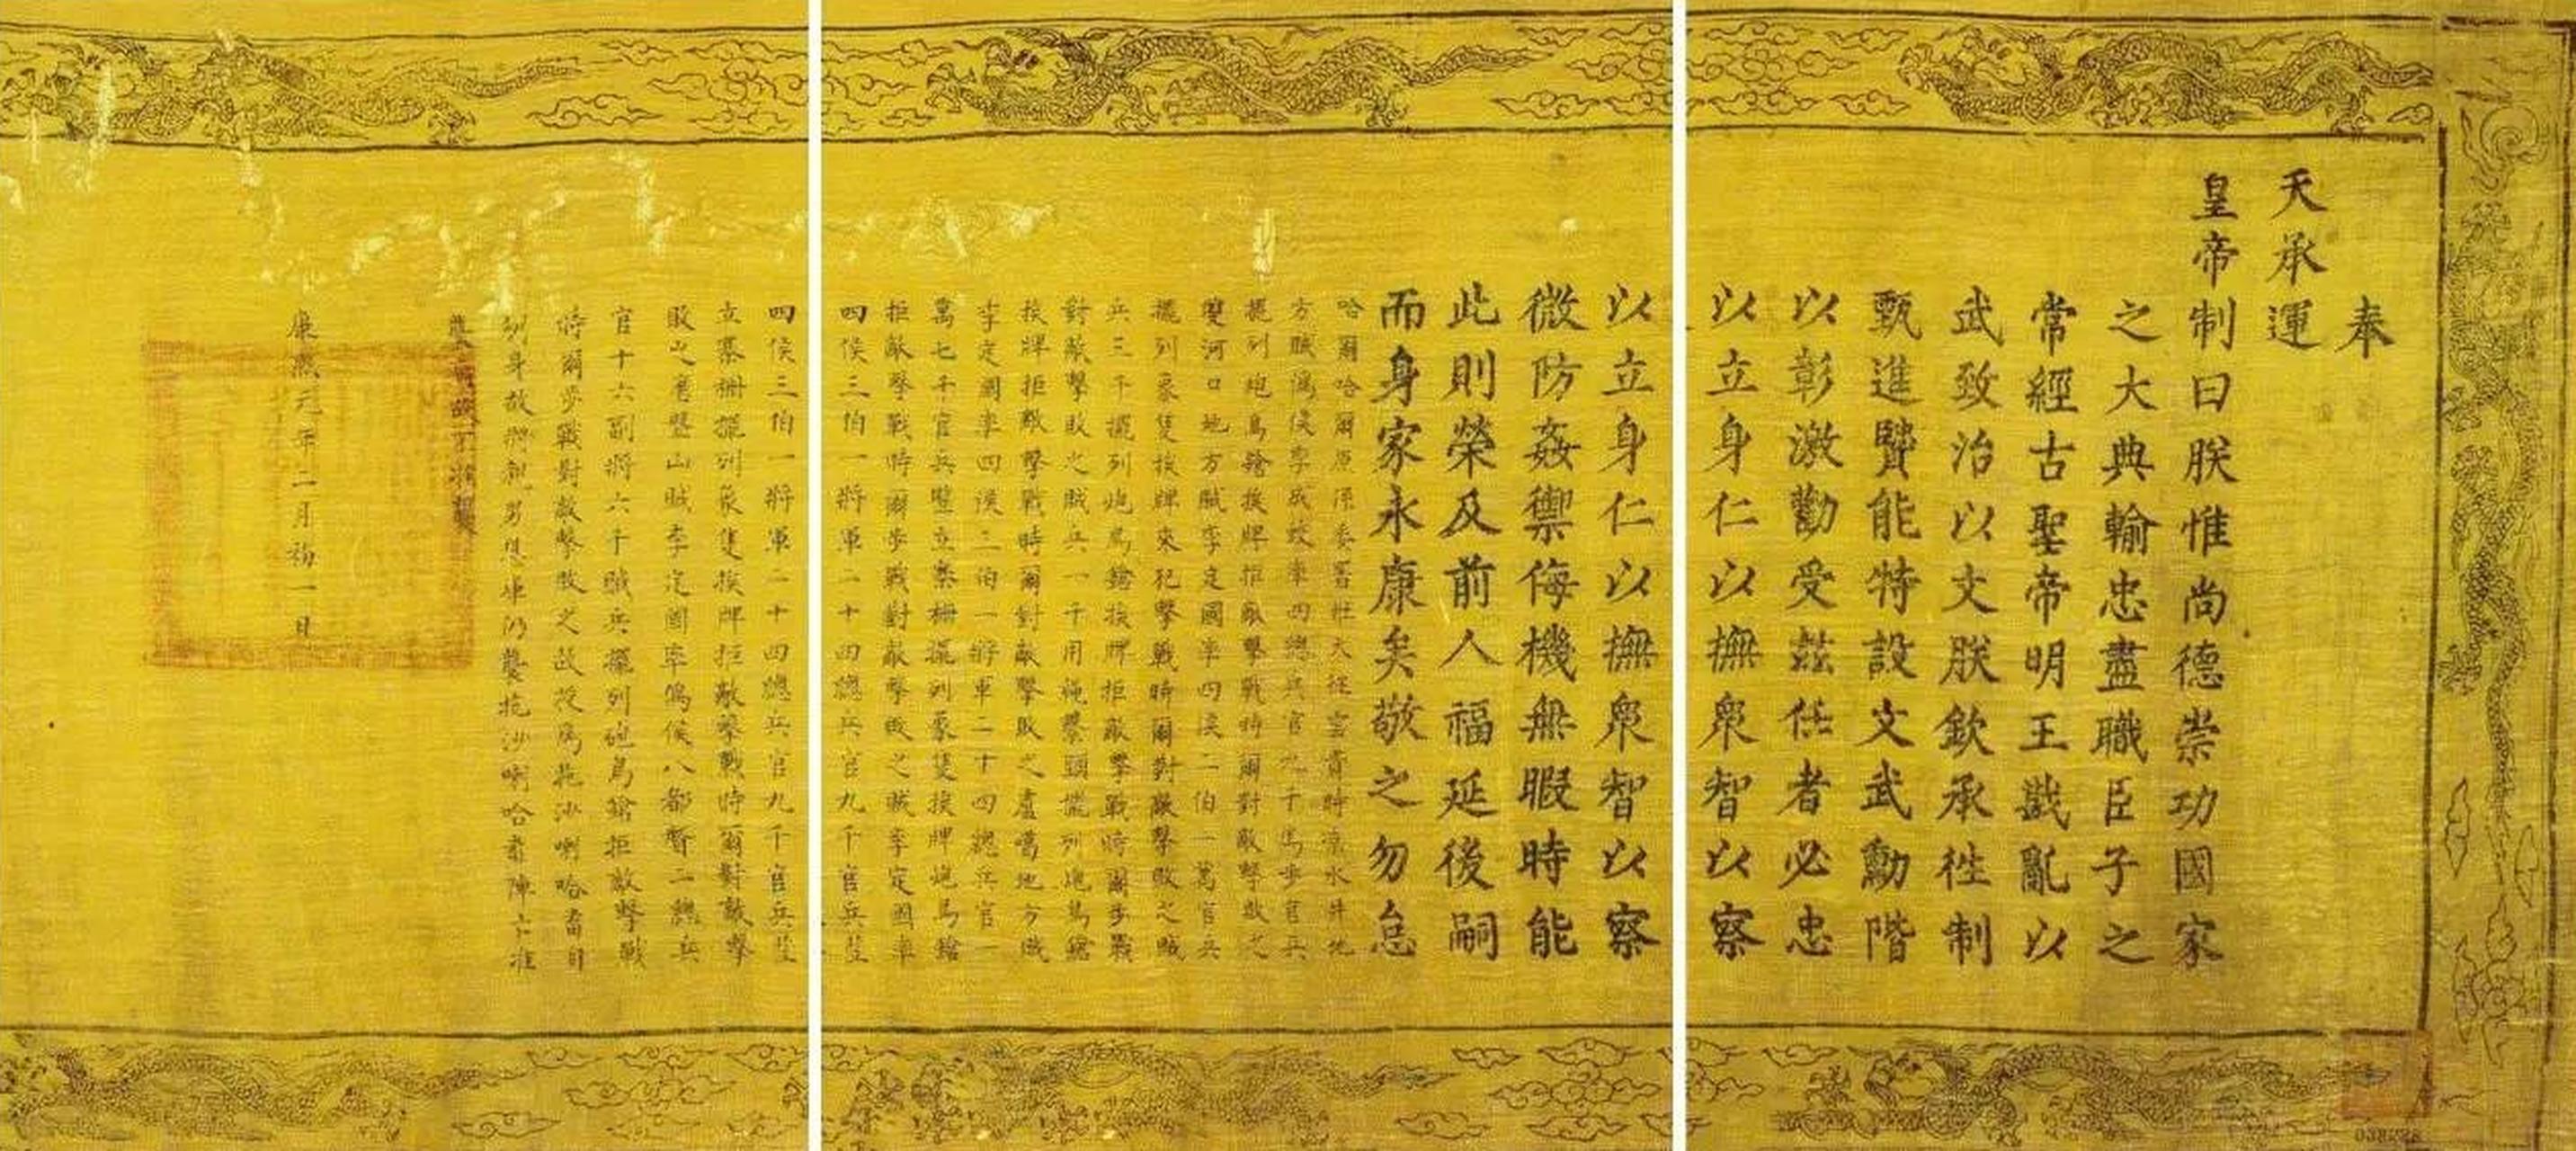 奉
天承運
皇帝制曰朕惟尚德崇功國家
之大典輸忠盡職臣子之
常經古聖帝明王戡亂以
武致治以文朕欽承往制
甄進賢能特設文武勳階
以彰激勸受茲任者必忠
以立身仁以撫衆智以察
以立身仁以撫衆智以察
微防姦禦侮機無暇時能
此則榮及前人福延後嗣
而身家永康矣敬之勿怠
哈爾哈爾原係委署壯大從雲貴時涼水井地
方賊僞侯李成蛟率四總兵官九千馬步官兵
擺列炮鳥鎗挨牌拒敵擊戰時爾對敵擊敗之
雙河口地方賊李定國率四侯二伯一萬官兵
擺列象隻挨牌來犯擊戰時爾對敵擊敗之賊
兵三千擺列炮鳥鎗挨牌拒敵擊戰時爾步戰
對敵擊敗之賊兵一千用繩攀頭擺列炮鳥鎗
挨牌拒敵擊戰時爾對敵擊敗之盧噶地方賊
李定國率四侯三伯一將軍二十四總兵官一
萬七千官兵豎立寨柵擺列象隻挨牌炮鳥鎗
拒敵擊戰時爾步戰對敵擊敗之賊李定國率
四侯三伯一將軍二十四總兵官九千官兵豎
四侯三伯一將軍二十四總兵官九千官兵豎
立寨柵擺列象隻挨牌拒敵擊戰時爾對敵擊
敗之磨盤山賊李定國率僞侯八都督二總兵
官十六副將六千賊兵擺列炮鳥鎗拒敵擊戰
時爾步戰對敵擊敗之故授爲拖沙喇哈番自
身故將親男仍襲拖沙喇哈番陣亡准
襲
康熙元年二月初一日